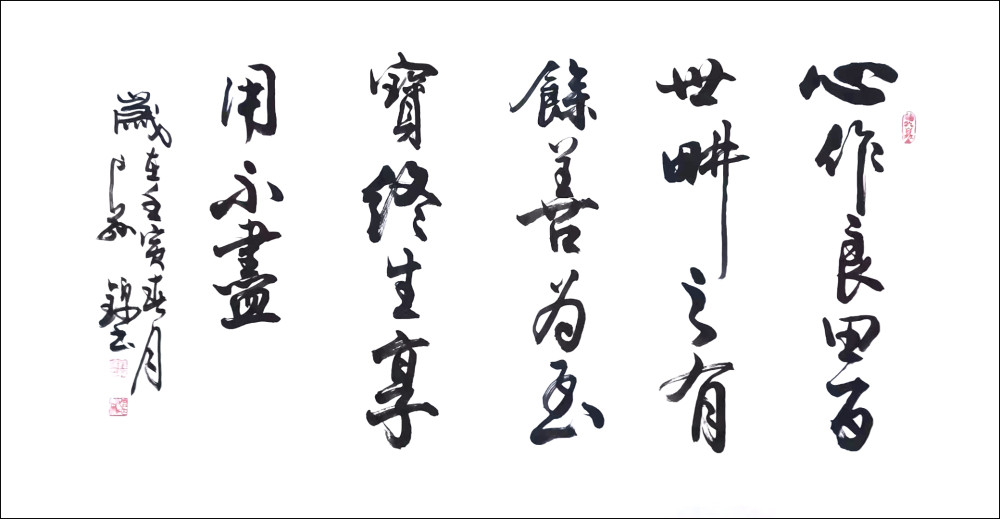 心作良田百
世畊之有
餘善為至
寶終生享
用不盡
歲在壬寅春月
錦書